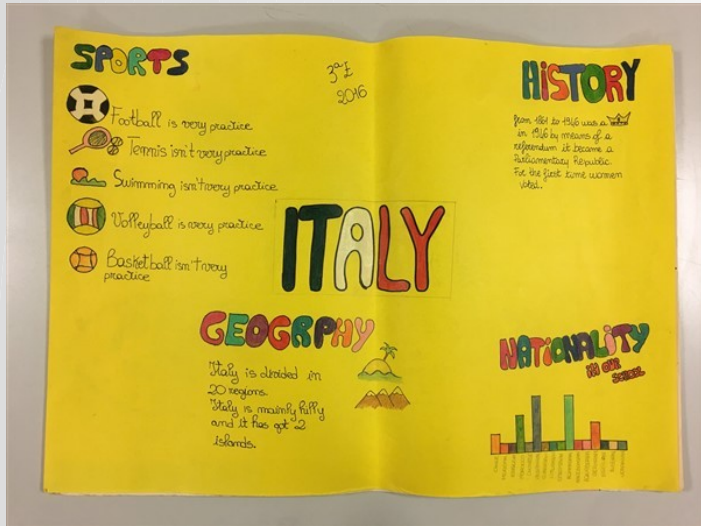 SPORTS
Football is very practice
Tennis isn't very practice
Swimming isn't very practice
Volleyball is very practice
Basketball isn't very
practice
3ª E
2016
HiSTORY
from 1861 to 1946 was a
in 1946 by means of a
referendum it became a
Parliamentary Republic.
For the first time women
voted.
ITALY
GEOGRPHY
Italy is divided in
20 regions.
Italy is mainly hilly
and it has got 2
islands.
NATiONALiTY
IN OUR
SCHOOL